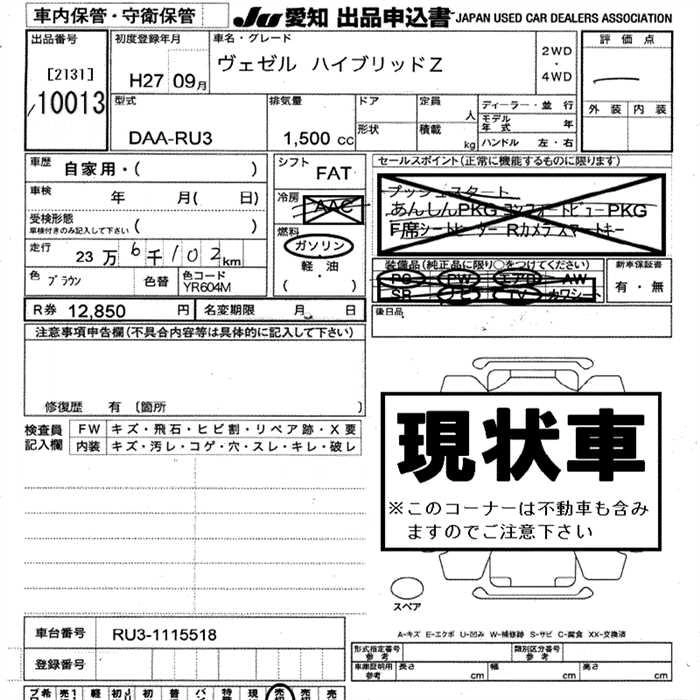 車内保管・守衛保管
JU 愛知 出品申込書 JAPAN USED CAR DEALERS ASSOCIATION
出品番号 初度登録年月 車名・グレード 評価点
[2131] 10013 H27 09月 ヴェゼル ハイブリッドZ 2WD・4WD
外装 内装
型式 排気量 ドア 定員 人 ディーラー・並行
DAA-RU3 1,500 cc 形状 積載 kg モデル年式 年
ハンドル 左・右
車歴 自家用・( ) シフト FAT セールスポイント(正常に機能するものに限ります)
車検 年 月( 日) 冷房 AAC プッシュスタート
受検形態 車検付きのみ記入して下さい ( ) あんしんPKG コンフォートビューPKG
燃料 F席シートヒーター Rカメラ スマートキー
走行 23万6千102km ガソリン
軽・油
( ・ )
装備品(純正品に限り○をつけてください) 新車保証書
色 ブラウン 色替 色コード YR604M PS PW エアB AW 有・無
SR ナビ TV カワシート
R券 12,850 円 名変期限 月 日 後日品
注意事項申告欄(不具合内容等は具体的に記入して下さい)
修復歴 有 〔箇所 〕
検査員記入欄 FW キズ・飛石・ヒビ割・リペア跡・X要
内装 キズ・汚レ・コゲ・穴・スレ・キレ・破レ
現状車
※このコーナーは不動車も含み
ますのでご注意下さい
スペア
車台番号 RU3-1115518
A-キズ E-エクボ U-凹み W-補修跡 S-サビ C-腐食 XX-交換済
登録番号 形式指定番号 参考 類別区分番号 参考
車庫証明用 参考 長さ cm 幅 cm 高さ cm